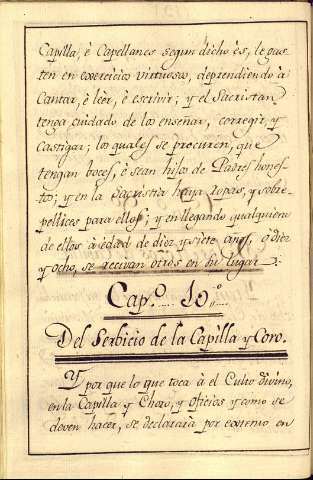 Capilla, è Capellanes segun dicho ès, le gas
ten en exercicios virtuosos, deprendiendo à
Cantar, è lèèr, è escrivir; y el Sacristan
tenga cuidado de los enseñar, corregir, y
Castigar; los quales se procuren, que
tengan boces, è sean hijos de Padres hones-
tos; y en la Sacristia haya ropas, y sobre-
pellices para ellos; y en llegando qualquiera
de ellos à edad de diez, y siete años, ò diez
y ocho, se recivan otros en su lugar.
Cap.º 10.º
Del Serbicio de la Capilla y Coro.
Y por que lo que toca à el Culto divino,
en la Capilla y Choro, y oficios y como se
deven hacer, se declararà por extenso en